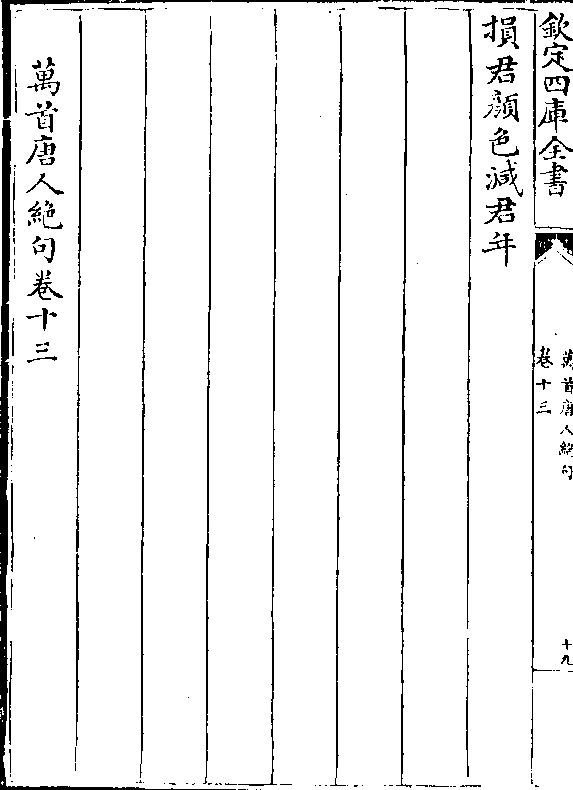 欽定四庫全書
萬首唐人絕句
卷十三
十九
損君顔色減君年
萬首唐人絶句卷十三